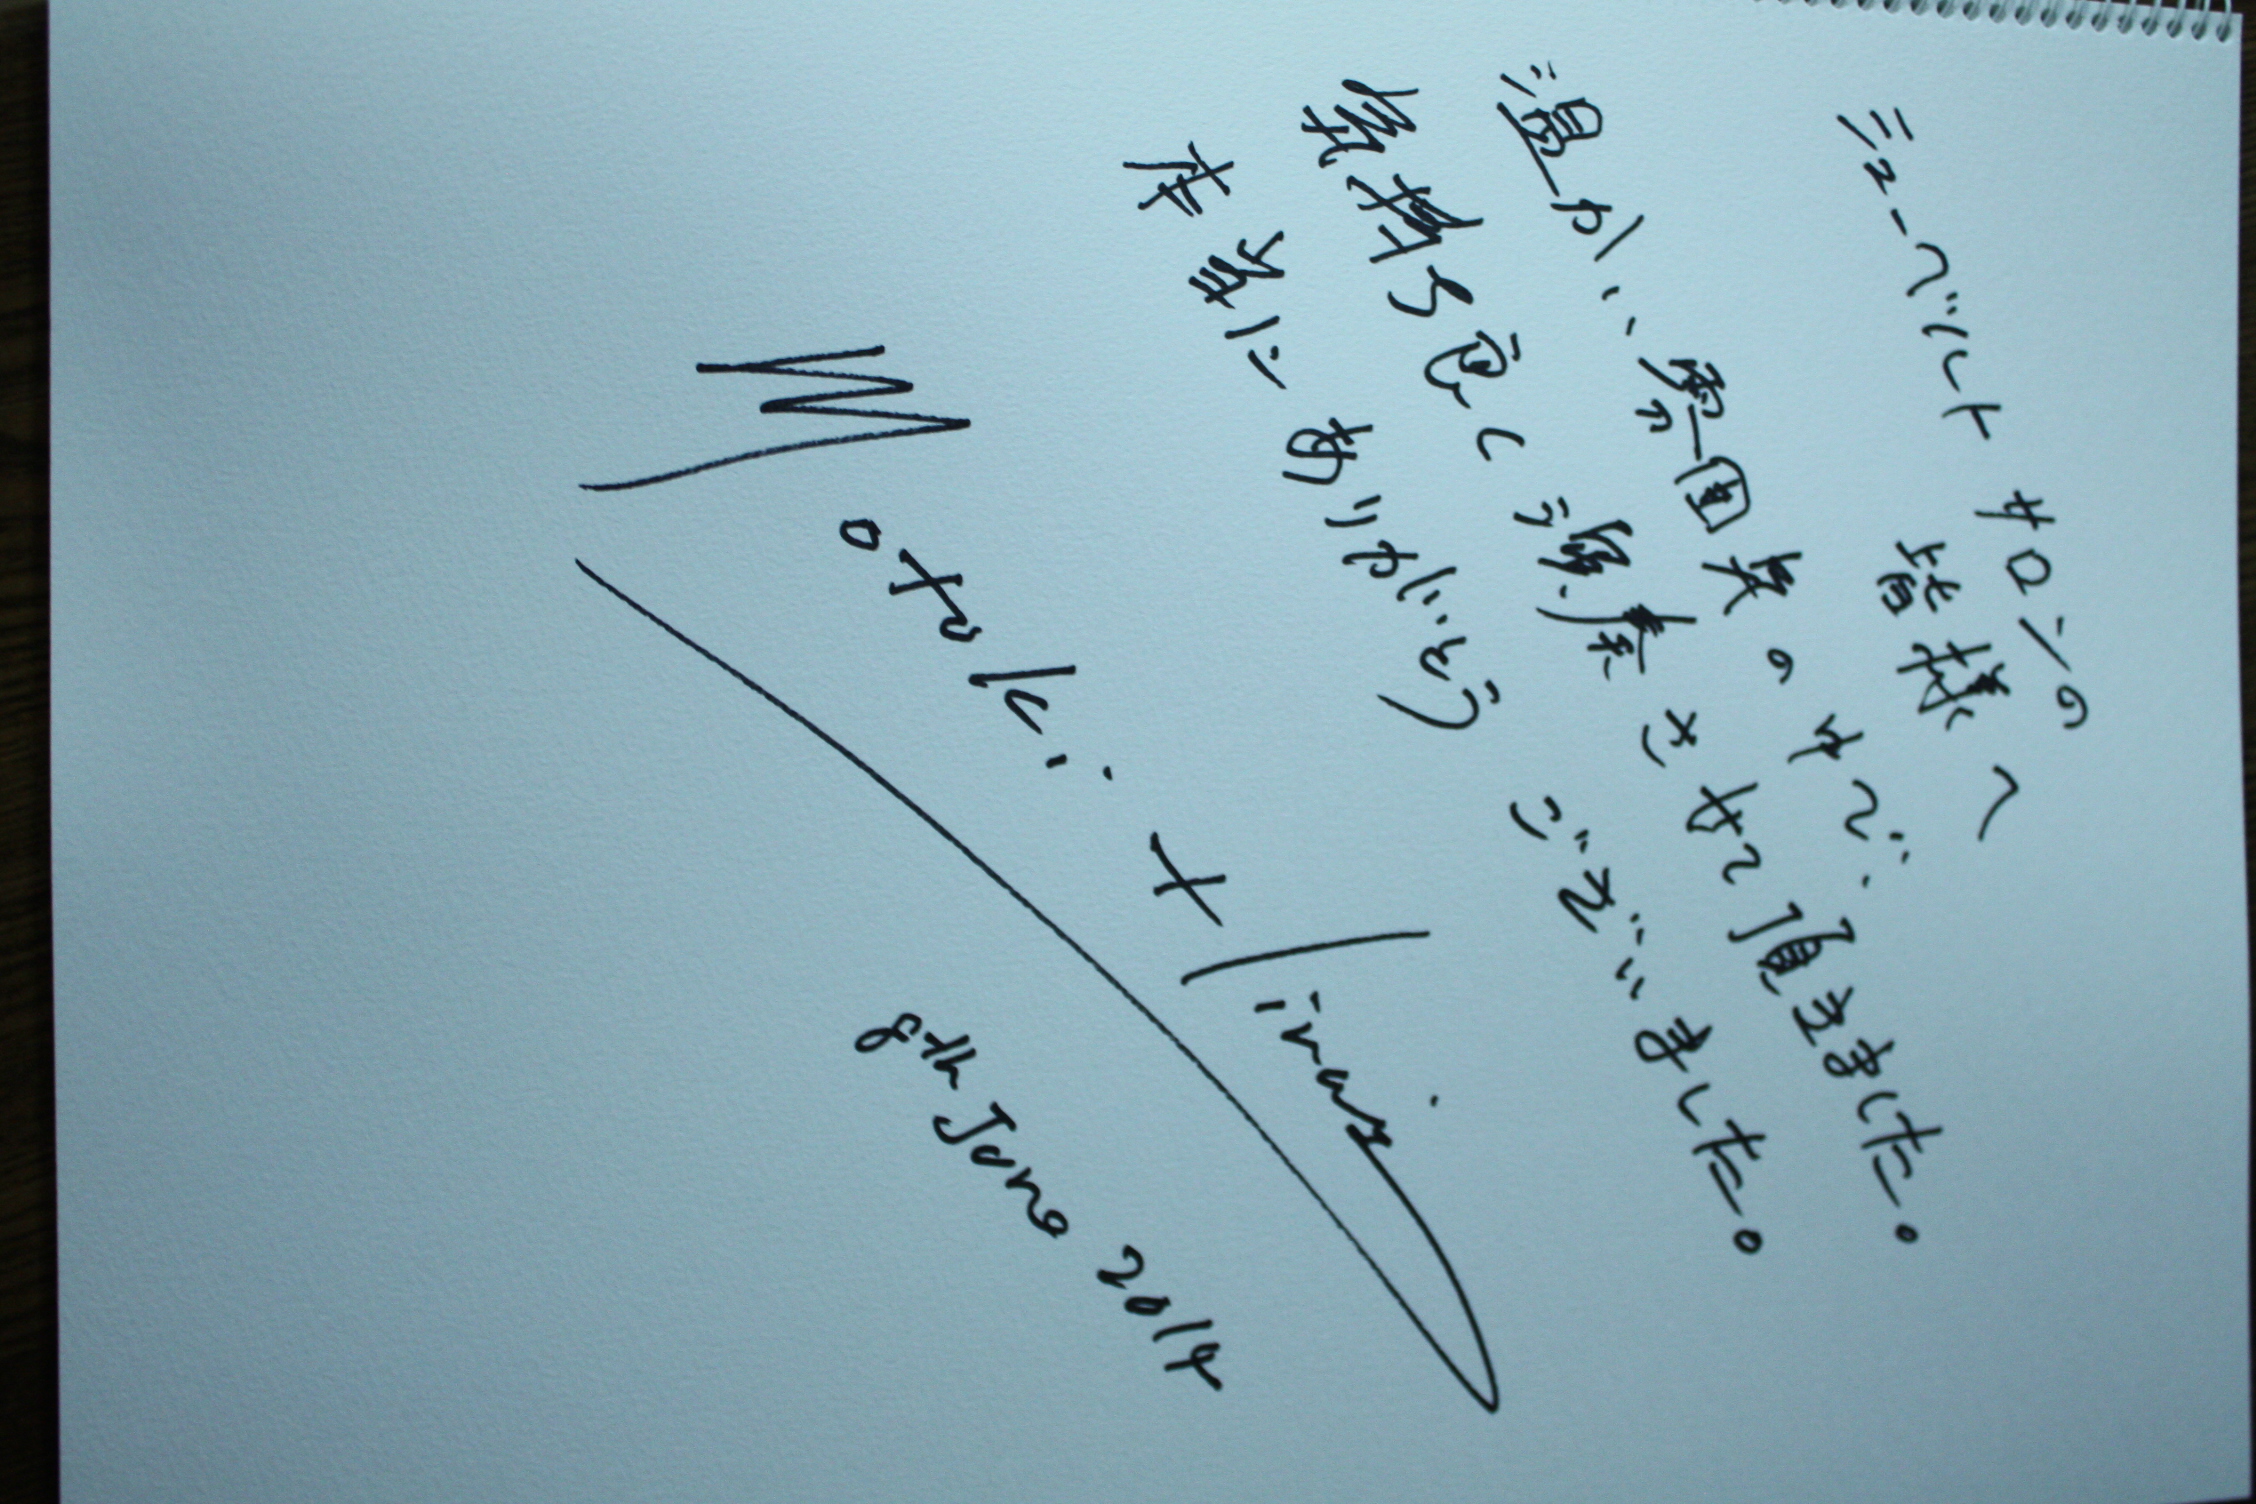 シューベルト サロンの
皆様へ
温かい雰囲気の中で、
気持ち良く演奏させて頂きました。
本当にありがとうございました。
Motoki Hirai
8th June 2014